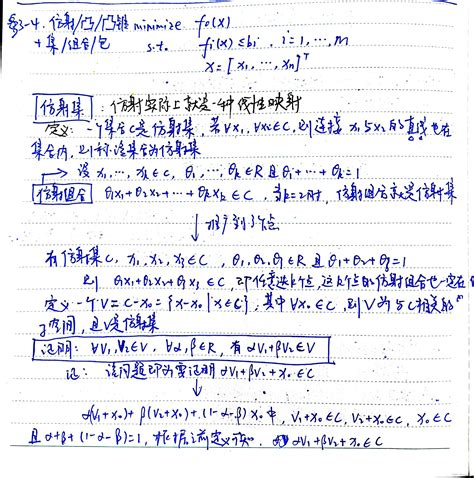 §3-4. 仿射/凸/凸锥 minimize f₀(x)
+ 集/组合/包 s.t. fᵢ(x) ≤ bᵢ, i=1,…,m
x = [x₁, …, xₙ]ᵀ
仿射集: 仿射实际上就是一种线性映射
定义: 一个集合C是仿射集, 若∀x₁, ∀x₂∈C, 则连接x₁与x₂的直线也在
集合内, 则称该集合为仿射集
→ 设x₁, …, xₖ∈C, θ₁, …, θₖ∈R 且θ₁+…+θₖ=1
仿射组合 θ₁x₁+θ₂x₂+…+θₖxₖ∈C, 当k=2时, 仿射组合就是仿射集
↓ 推广到3个点
有仿射集C, x₁, x₂, x₃∈C, θ₁, θ₂, θ₃∈R 且θ₁+θ₂+θ₃=1
则 θ₁x₁+θ₂x₂+θ₃x₃∈C, 即任意选k个点, 这k个点的仿射组合也一定在
定义一个V = C-x₀ = {x-x₀ | x∈C}, 其中∀x₀∈C, 则V为与C相关的
子空间, 且V是仿射集
证明: ∀V₁, V₂∈V, ∀α, β∈R, 有αV₁+βV₂∈V
证: 该问题即为要证明αV₁+βV₂+x₀∈C
↓
α(V₁+x₀)+β(V₂+x₀)+(1-α-β)x₀中, V₁+x₀∈C, V₂+x₀∈C, x₀∈C
且α+β+(1-α-β)=1, 根据之前定义可知, αV₁+βV₂+x₀∈C